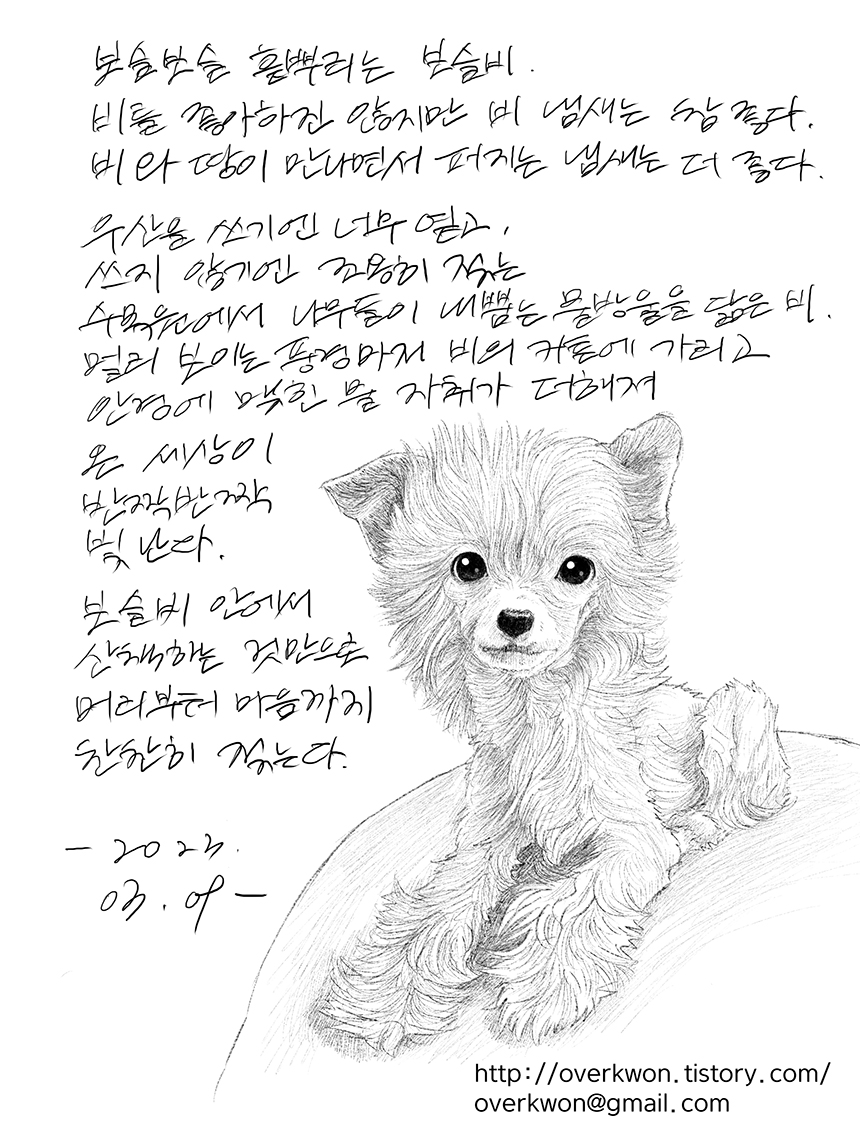 보슬보슬 흩뿌리는 보슬비.
비를 좋아하진 않지만 비 냄새는 참 좋다.
비와 땅이 만나면서 퍼지는 냄새는 더 좋다.
우산을 쓰기엔 너무 옅고,
쓰지 않기엔 조용히 젖는
수목원에서 나무들이 내뿜는 물방울을 닮은 비.
멀리 보이는 풍경마저 비의 커튼에 가리고
안경에 맺힌 물 자취가 더해져
온 세상이
반짝반짝
빛난다.
보슬비 안에서
산책하는 것만으로
머리부터 마음까지
찬찬히 젖는다.
- 2023.
03. 09 -
http://overkwon.tistory.com/
overkwon@gmail.com